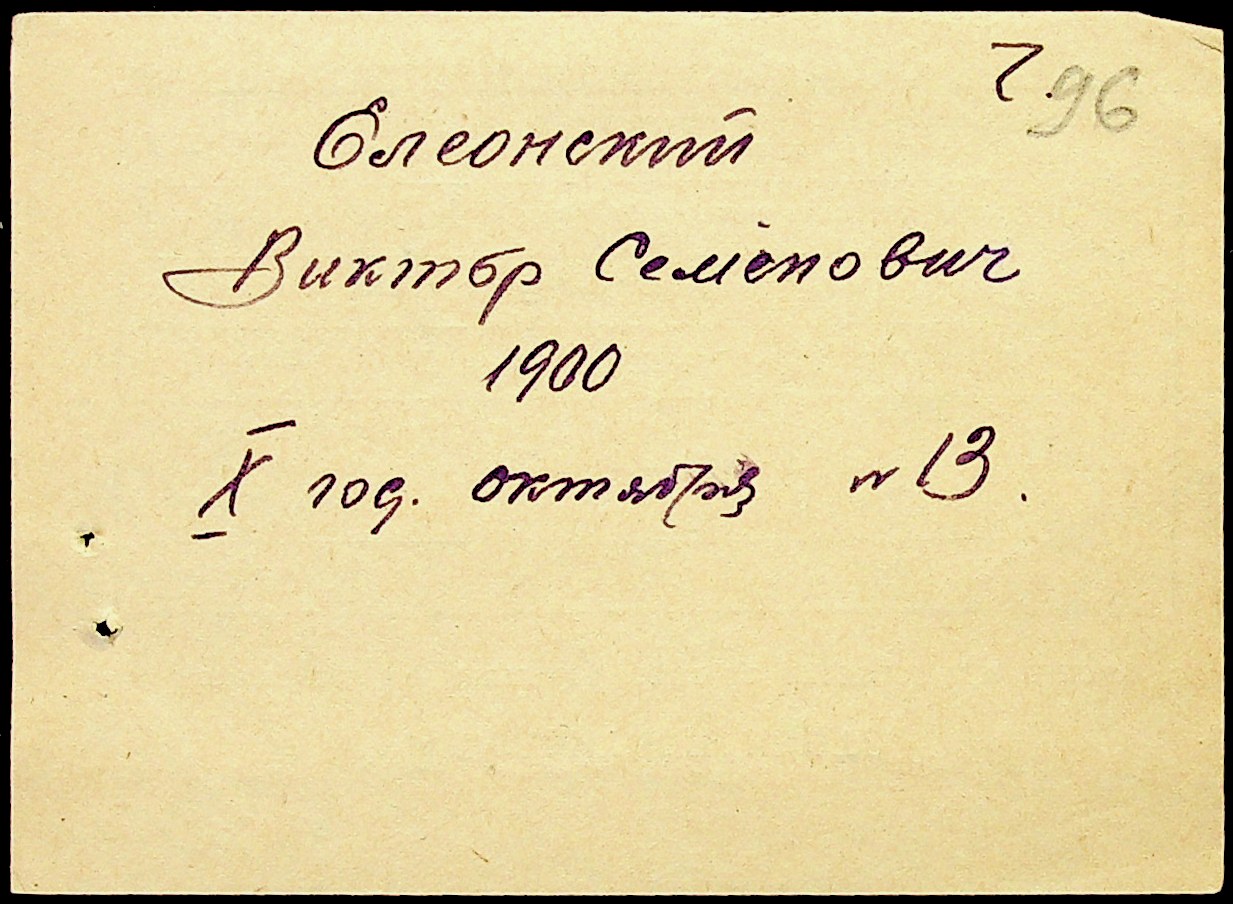 7.
96
Елеонский
Виктор Семенович
1900
X год. октября № 13.